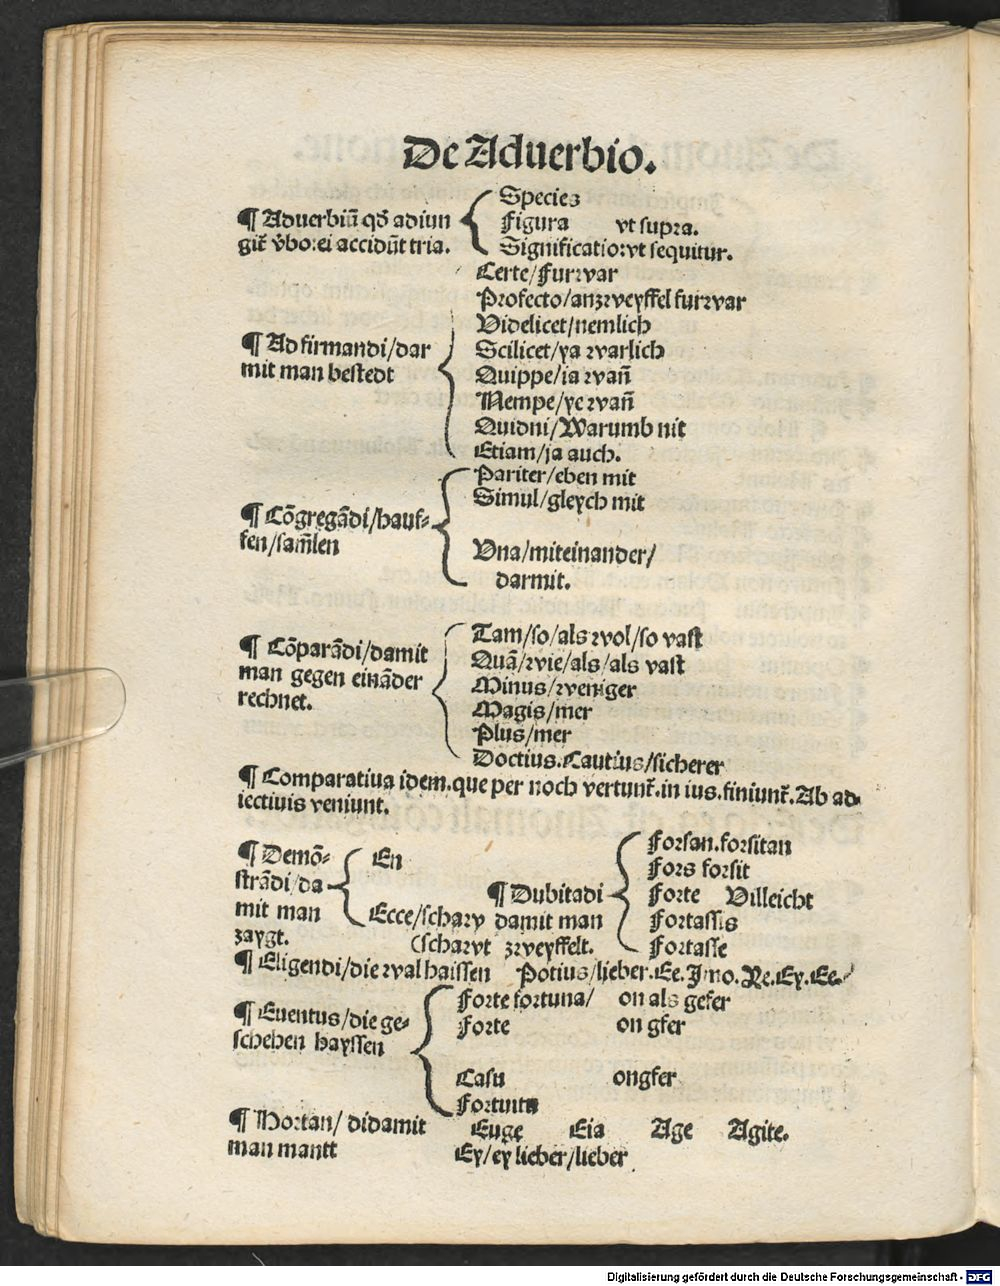 De Aduerbio.
¶ Aduerbiū qđ adiun
git̃ v̾bo: ei accidūt tria.
Species
Figura vt supra.
Significatio: vt sequitur.
¶ Ad firmandi/dar
mit man bestedt
Certe/furwar
Profecto/anzweyffel furwar
Videlicet/nemlich
Scilicet/ya warlich
Quippe/ia wañ
Nempe/ye wañ
Quidni/Warumb nit
Etiam/ja auch.
¶ Cōgregādi/hauf-
fen/sam̄len
Pariter/eben mit
Simul/gleych mit
Vna/miteinander/
darmit.
¶ Cōparādi/damit
man gegen eināder
rechnet.
Tam/so/als wol/so vast
Quā/wie/als/als vast
Minus/weniger
Magis/mer
Plus/mer
Doctius. Cautius/sicherer
¶ Comparatiua idem. que per noch vertunt̃. in ius. finiunt̃. Ab ad-
iectiuis veniunt.
¶ Demō-
strādi/da
mit man
zaygt.
En
Ecce/schaw
(schawt
¶ Dubitadi
damit man
zweyffelt.
Forsan. forsitan
Fors forsit
Forte Villeicht
Fortassis
Fortasse
¶ Eligendi/die wal haissen Potius/lieber. Ee. Imo. Ne. Ey. Ee.
¶ Euentus/die ge-
schehen hayssen
Forte fortuna/ on als gefer
Forte on gfer
Casu ongfer
Fortuitu
¶ Hortan/ didamit
man mantt
Euge Eia Age Agite.
Ey/ey lieber/lieber
Digitalisierung gefördert durch die Deutsche Forschungsgemeinschaft - DFG